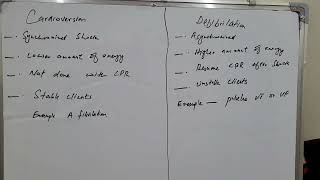 Cardioversion
— Synchronised Shock
— Lower amount of energy
— Not done with CPR
— Stable clients
Example A fibrilation
Defibrilation
— Asynchronised
— Higher amount of energy
— Resume CPR after Shock
— Unstable clients
Example — pulseless VT or VF